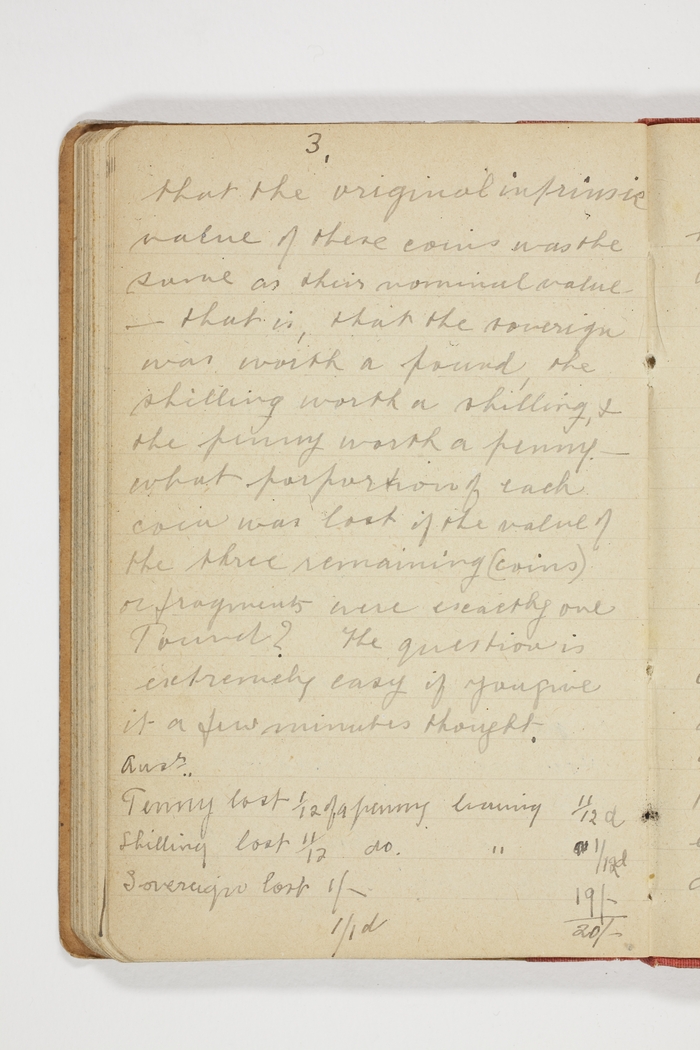 3.
that the original intrinsic
value of these coins was the
same as their nominal value
— that is, that the sovereign
was worth a pound, the
shilling worth a shilling, &
the penny worth a penny —
what porportion of each
coin was lost if the value of
the three remaining (coins)
or fragments were exactly one
Pound? The question is
extremely easy if you give
it a few minutes thought.
Ansr.
Penny lost 1/12 of a penny leaving 11/12 d
Shilling lost 11/12 do. " 11/12d
Sovereign lost 1/- 19/-
1/1d 20/-